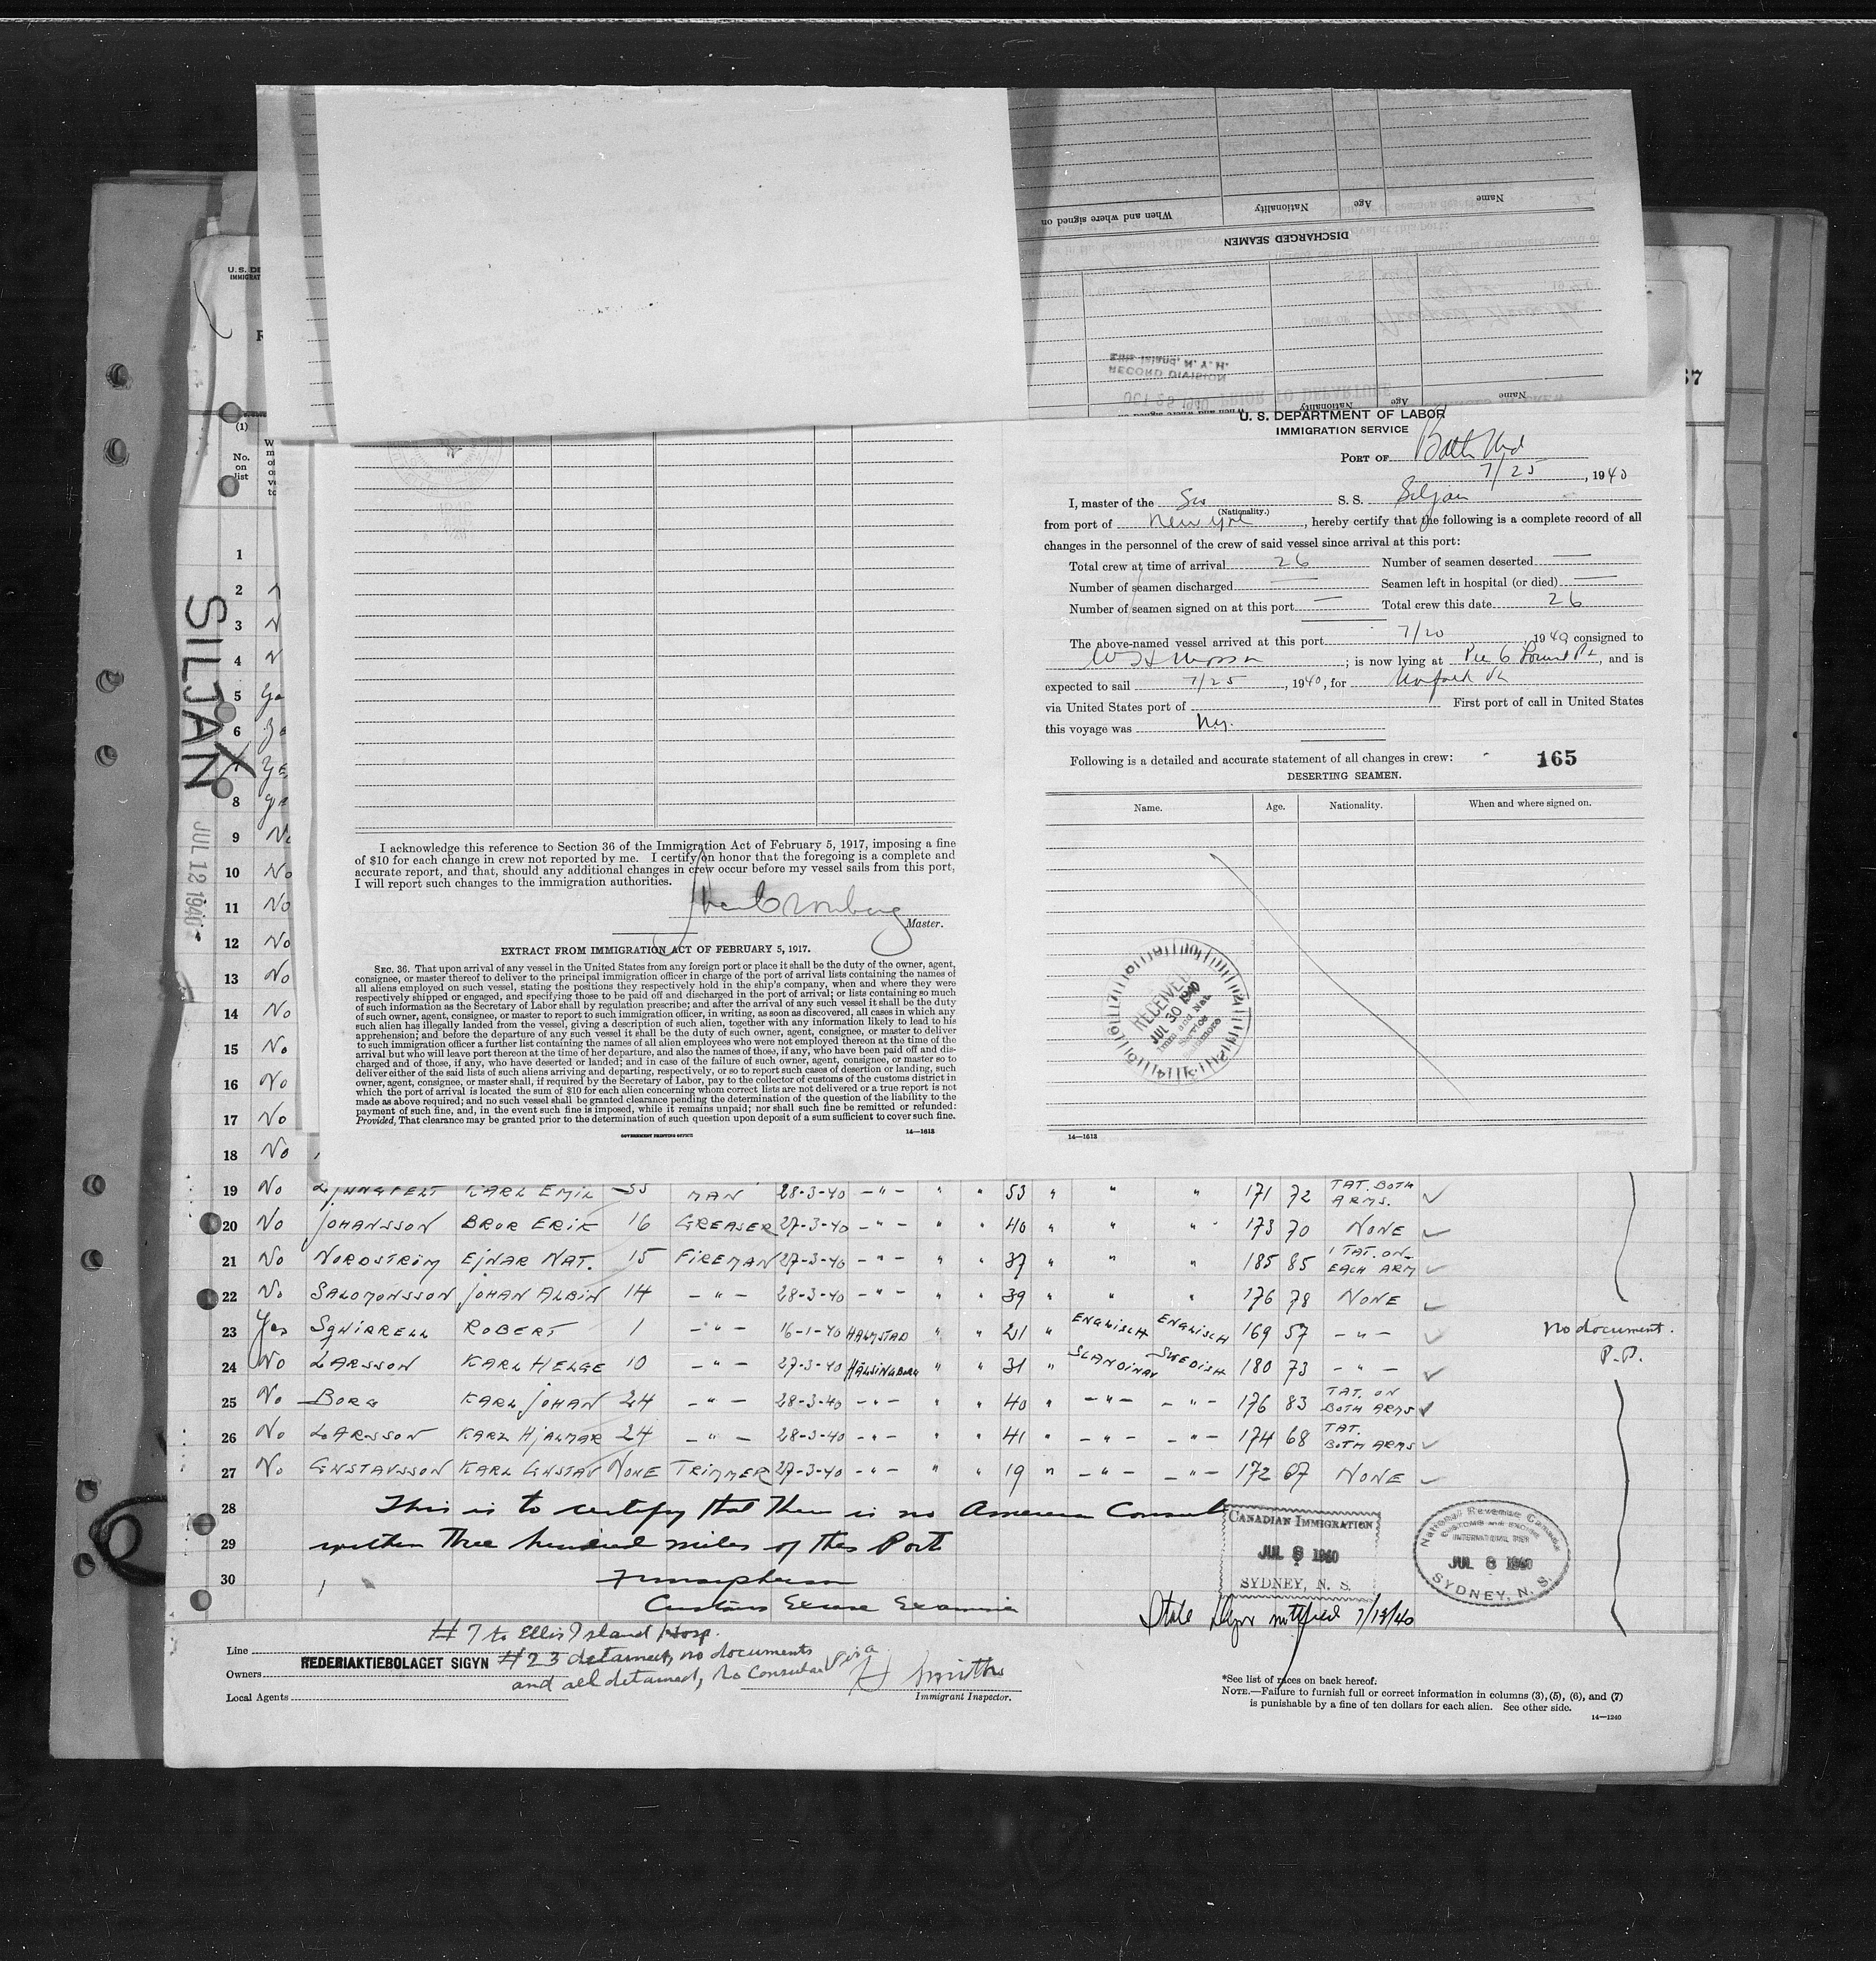 DISCHARGED SEAMEN
Name
Age
Nationality
When and where signed on
RECORD DIVISION
Ellis Island, N. Y. H.
OCT 25 1940 PRIOR TO DEPARTURE
Name
Age
Nationality
When and where signed on
37
U. S. DE
IMMIGRAT
(1)
No.
on
list
SILJAN
JUL 12 1940
1
2
3
4
5 Ye
6 Ye
7 Ye
8 Ye
9 No
10 No
11 No
12 No
13 No
14 No
15 No
16 No
17 No
18 No
I acknowledge this reference to Section 36 of the Immigration Act of February 5, 1917, imposing a fine
of $10 for each change in crew not reported by me. I certify on honor that the foregoing is a complete and
accurate report, and that, should any additional changes in crew occur before my vessel sails from this port,
I will report such changes to the immigration authorities.
Master.
EXTRACT FROM IMMIGRATION ACT OF FEBRUARY 5, 1917.
SEC. 36. That upon arrival of any vessel in the United States from any foreign port or place it shall be the duty of the owner, agent,
consignee, or master thereof to deliver to the principal immigration officer in charge of the port of arrival lists containing the names of
all aliens employed on such vessel, stating the positions they respectively hold in the ship's company, when and where they were
respectively shipped or engaged, and specifying those to be paid off and discharged in the port of arrival; or lists containing so much
of such information as the Secretary of Labor shall by regulation prescribe; and after the arrival of any such vessel it shall be the duty
of such owner, agent, consignee, or master to report to such immigration officer, in writing, as soon as discovered, all cases in which any
such alien has illegally landed from the vessel, giving a description of such alien, together with any information likely to lead to his
apprehension; and before the departure of any such vessel it shall be the duty of such owner, agent, consignee, or master to deliver
to such immigration officer a further list containing the names of all alien employees who were not employed thereon at the time of the
arrival but who will leave port thereon at the time of her departure, and also the names of those, if any, who have been paid off and dis-
charged and of those, if any, who have deserted or landed; and in case of the failure of such owner, agent, consignee, or master so to
deliver either of the said lists of such aliens arriving and departing, respectively, or so to report such cases of desertion or landing, such
owner, agent, consignee, or master shall, if required by the Secretary of Labor, pay to the collector of customs of the customs district in
which the port of arrival is located the sum of $10 for each alien concerning whom correct lists are not delivered or a true report is not
made as above required; and no such vessel shall be granted clearance pending the determination of the question of the liability to the
payment of such fine, and, in the event such fine is imposed, while it remains unpaid; nor shall such fine be remitted or refunded:
Provided, That clearance may be granted prior to the determination of such question upon deposit of a sum sufficient to cover such fine.
GOVERNMENT PRINTING OFFICE 14—1613
U. S. DEPARTMENT OF LABOR
IMMIGRATION SERVICE
PORT OF Balto Md
7/25, 1940
I, master of the Sw S. S. Siljan
(Nationality.)
from port of New York, hereby certify that the following is a complete record of all
changes in the personnel of the crew of said vessel since arrival at this port:
Total crew at time of arrival 26 Number of seamen deserted —
Number of seamen discharged — Seamen left in hospital (or died) —
Number of seamen signed on at this port — Total crew this date 26
The above-named vessel arrived at this port 7/20, 1940 consigned to
; is now lying at Pier 6, and is
expected to sail 7/25, 1940, for Norfolk Va
via United States port of First port of call in United States
this voyage was Ny.
Following is a detailed and accurate statement of all changes in crew: 165
DESERTING SEAMEN.
Name. Age. Nationality. When and where signed on.
RECEIVED
JUL 30 1940
Imm and Nat
Service
Baltimore
14—1613
19 No LJUNGFELT KARL EMIL 35 MAN 28-3-40 -"- " " 53 " " " 171 72 TAT. BOTH ARMS.
20 No JOHANSSON BROR ERIK 16 GREASER 27-3-40 -"- " " 40 " " " 173 70 NONE
21 No NORDSTRÖM EJNAR NAT. 15 FIREMAN 27-3-40 -"- " " 37 " " " 185 85 1 TAT. ON EACH ARM
22 No SALOMONSSON JOHAN ALBIN 14 -"- 28-3-40 -"- " " 39 " " " 176 78 NONE
23 Yes SQUIRRELL ROBERT 1 -"- 16-1-40 HALMSTAD " " 21 " ENGLISCH ENGLISCH 169 57 -"- No document.
P.P.
24 No LARSSON KARL HELGE 10 -"- 27-3-40 HÄLSINGBORG " " 31 " SCANDINAV SWEDISH 180 73 -"-
25 No BORG KARL JOHAN 24 -"- 28-3-40 -"- " " 40 " -"- -"- 176 83 TAT. ON BOTH ARMS
26 No LARSSON KARL HJALMAR 24 -"- 28-3-40 -"- " " 41 " -"- -"- 174 68 TAT. BOTH ARMS
27 No GUSTAVSSON KARL GUSTAV NONE TRIMMER 27-3-40 -"- " " 19 " -"- -"- 172 67 NONE
28 This is to certify that there is no American Consul
29 within three hundred miles of this Port
30
Customs Excise Examiner
CANADIAN IMMIGRATION
JUL 8 1940
SYDNEY, N. S.
National Revenue Canada
CUSTOMS and EXCISE
JUL 8 1940
SYDNEY, N. S.
State Dept notified 7/13/40
#7 to Ellis Island Hosp.
Line
Owners REDERIAKTIEBOLAGET SIGYN #23 detained, no documents
and all detained, no Consular Visa
H Smith
Local Agents Immigrant Inspector.
*See list of races on back hereof.
NOTE.—Failure to furnish full or correct information in columns (3), (5), (6), and (7)
is punishable by a fine of ten dollars for each alien. See other side.
14—1240